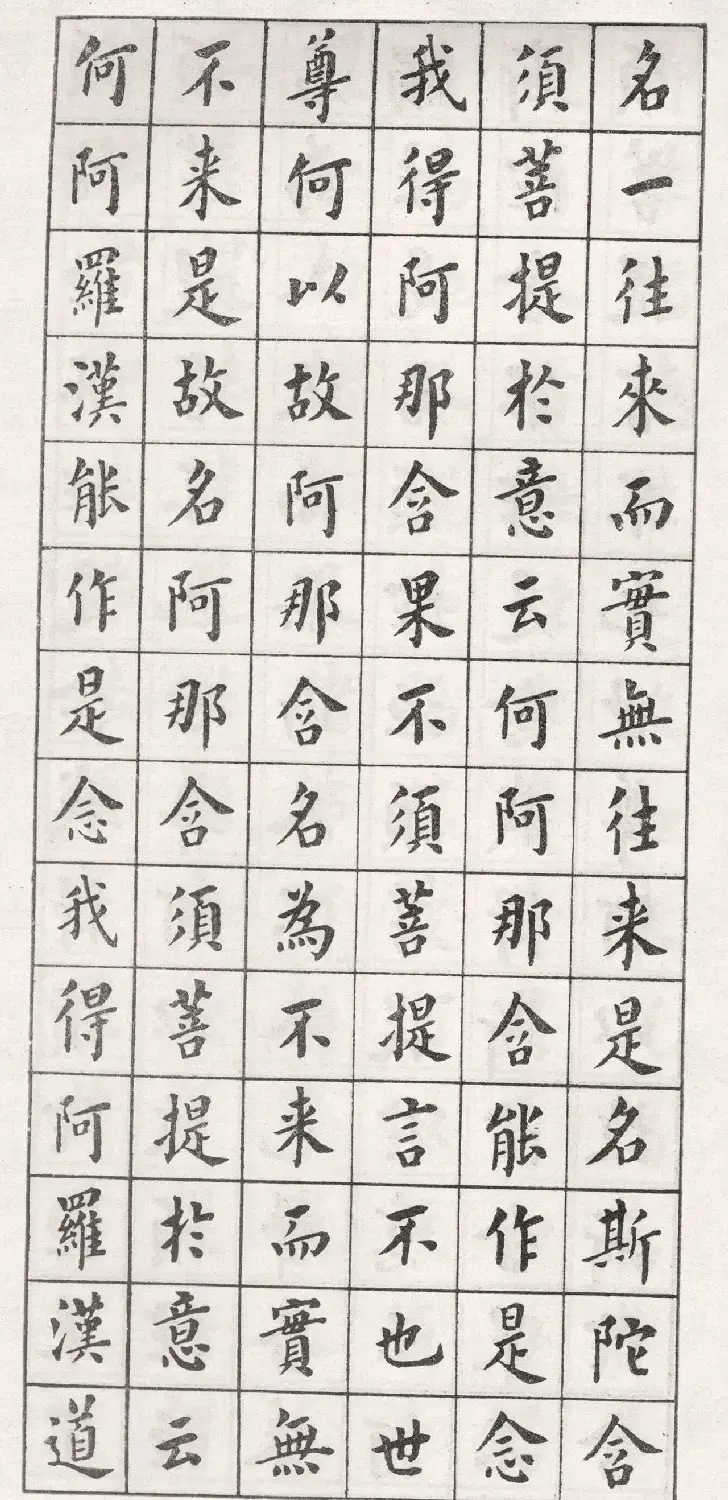 名一往來而實無往来是名斯陀含
須菩提於意云何阿那含能作是念
我得阿那含果不須菩提言不也世
尊何以故阿那含名為不来而實無
不来是故名阿那含須菩提於意云
何阿羅漢能作是念我得阿羅漢道